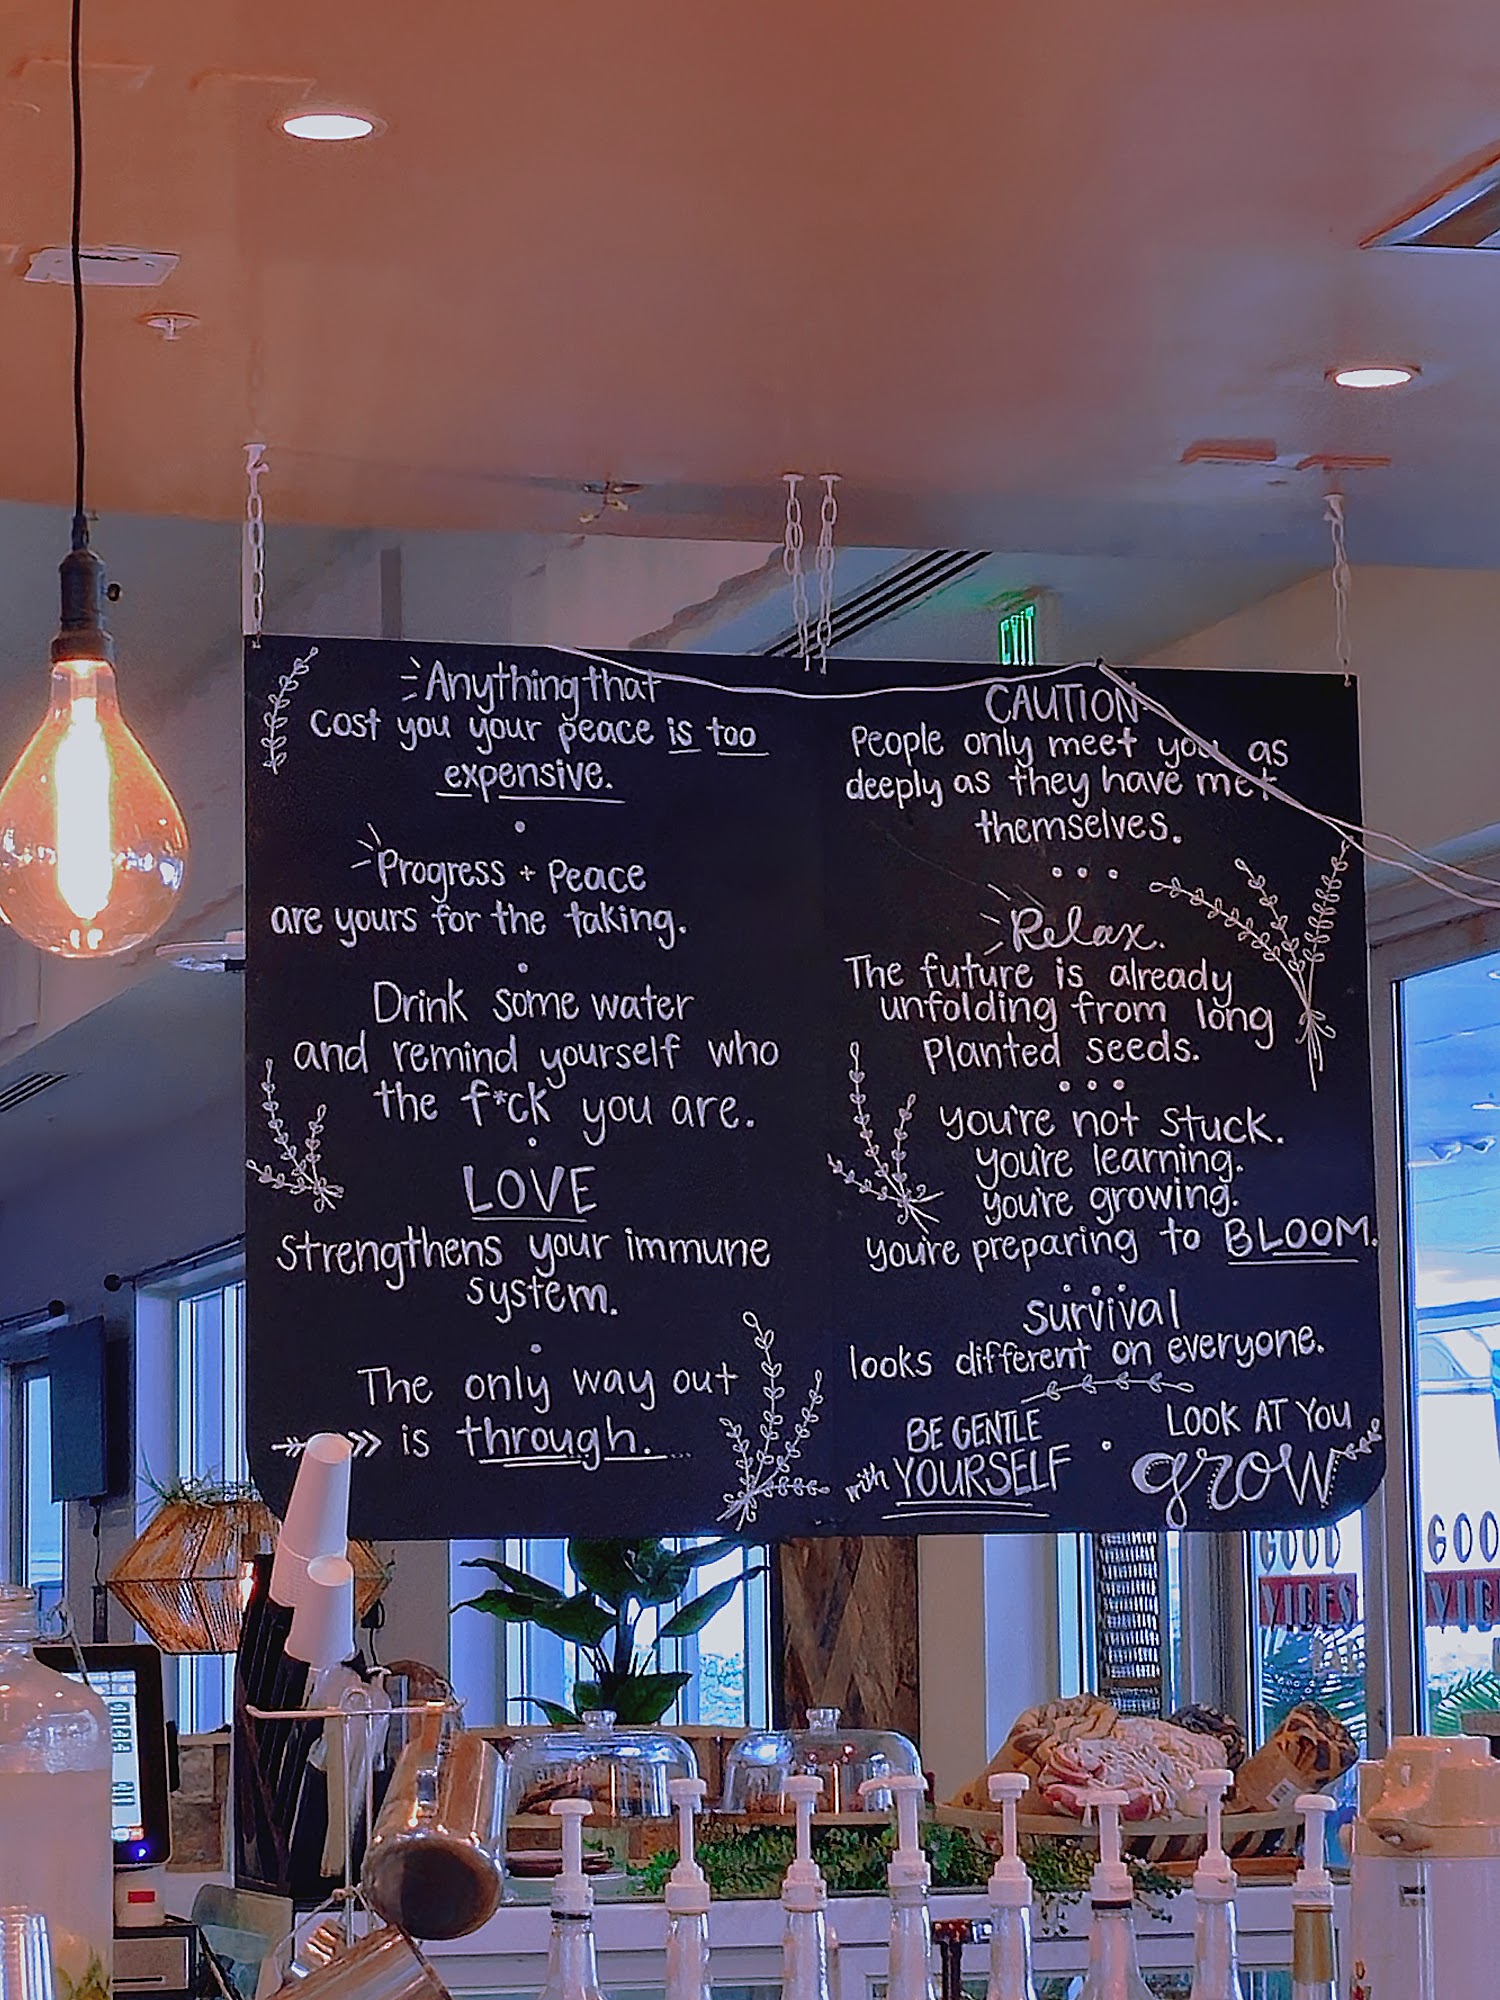 Anything that
cost you your peace is too
expensive.
Progress + Peace
are yours for the taking.
Drink some water
and remind yourself who
the f*ck you are.
LOVE
strengthens your immune
system.
The only way out
is through.
CAUTION
People only meet you as
deeply as they have met
themselves.
Relax.
The future is already
unfolding from long
planted seeds.
you're not stuck.
you're learning.
you're growing.
you're preparing to BLOOM.
survival
looks different on everyone.
BE GENTLE
with YOURSELF
LOOK AT YOU
grow
GOOD
VIBES
GOO
VIB